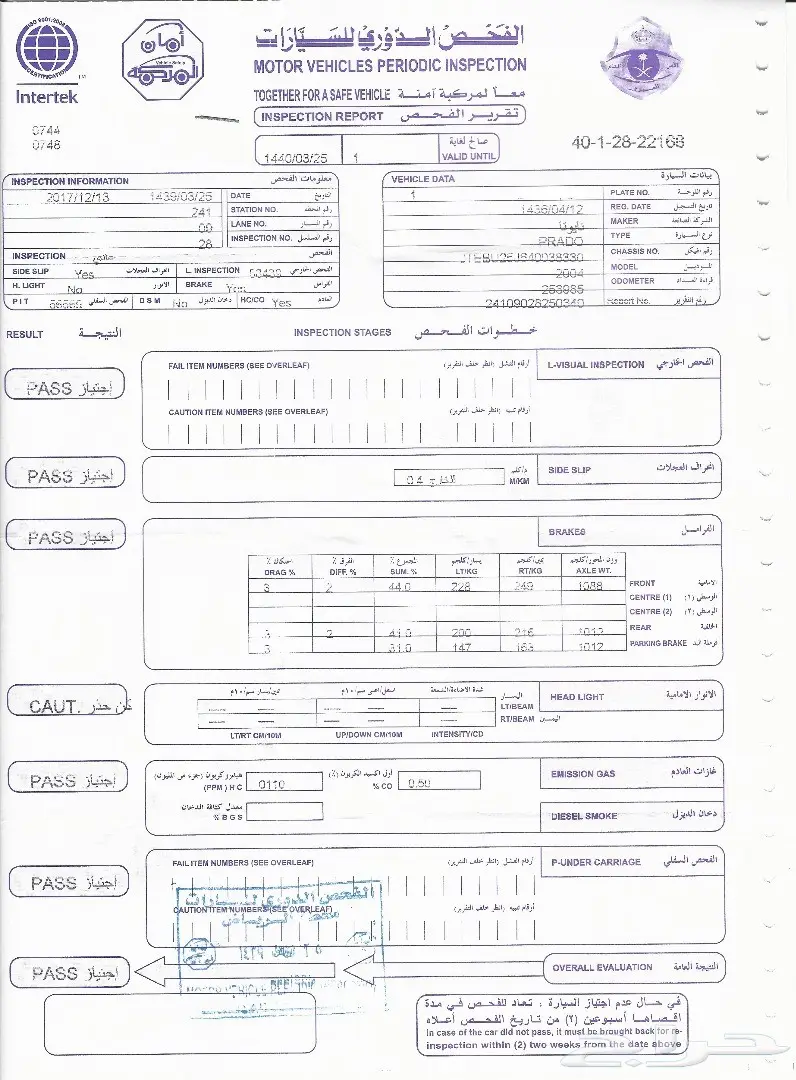 ISO 9001:2008
CERTIFICATION
Intertek
0744
0748
أمان
Vehicle Safety
المركبة
الفحص الدوري للسيارات
MOTOR VEHICLES PERIODIC INSPECTION
TOGETHER FOR A SAFE VEHICLE معاً لمركبة آمنة
INSPECTION REPORT تقرير الفحص
1440/03/25 1 صالح لغاية VALID UNTIL
40-1-28-22168
INSPECTION INFORMATION معلومات الفحص
2017/12/13 1439/03/25 DATE التاريخ
241 STATION NO. رقم المحطة
00 LANE NO. رقم المسار
28 INSPECTION NO. رقم التسلسل
INSPECTION الفحص
SIDE SLIP Yes انحراف العجلات L. INSPECTION الفحص الخارجي
H. LIGHT No الانوار BRAKE Yes الفرامل
PIT الفحص السفلي DSM No دخان الديزل HC/CO Yes العادم
VEHICLE DATA بيانات السيارة
1 PLATE NO. رقم اللوحة
1436/04/12 REG. DATE تاريخ التسجيل
تايوتا MAKER الشركة الصانعة
PRADO TYPE نوع السيارة
CHASSIS NO. رقم الهيكل
2004 MODEL الموديل
253985 ODOMETER قراءة العداد
24109028250340 Report No. رقم التقرير
RESULT النتيجة INSPECTION STAGES خطوات الفحص
FAIL ITEM NUMBERS (SEE OVERLEAF) أرقام الفشل (انظر خلف التقرير) L-VISUAL INSPECTION الفحص الخارجي
PASS إجتياز
CAUTION ITEM NUMBERS (SEE OVERLEAF) أرقام تنبيه (انظر خلف التقرير)
PASS إجتياز 0.4 الناتج م/كلم M/KM SIDE SLIP انحراف العجلات
PASS إجتياز BRAKES الفرامل
احتكاك % الفرق % المجموع % يسار/كلجم يمين/كلجم وزن المحور/كلجم
DRAG % DIFF. % SUM. % LT/KG RT/KG AXLE WT.
3 2 44.0 228 249 1088 FRONT الامامية
CENTRE (1) الوسطى (١)
CENTRE (2) الوسطى (٢)
3 2 41.0 200 216 1012 REAR الخلفية
3 31.0 147 163 1012 PARKING BRAKE فرملة اليد
CAUT. كن حذر
يمين/يسار سم/١٠م اسفل/اعلى سم/١٠م شدة الاضاءة/الشمعة
اليسار LT/BEAM HEAD LIGHT الانوار الامامية
RT/BEAM اليمين
LT/RT CM/10M UP/DOWN CM/10M INTENSITY/CD
PASS إجتياز
هيدروكربون (جزء من المليون) (PPM) H C 0110 أول اكسيد الكربون (٪) % CO 0.50 EMISSION GAS غازات العادم
معدل كثافة الدخان % B G S DIESEL SMOKE دخان الديزل
FAIL ITEM NUMBERS (SEE OVERLEAF) أرقام الفشل (انظر خلف التقرير) P-UNDER CARRIAGE الفحص السفلي
PASS إجتياز
الفحص الدوري للسيارات
CAUTION ITEM NUMBERS (SEE OVERLEAF) أرقام تنبيه (انظر خلف التقرير)
PASS إجتياز OVERALL EVALUATION النتيجة العامة
في حال عدم اجتياز السيارة ، تعاد للفحص في مدة
اقصاها أسبوعين (٢) من تاريخ الفحص أعلاه
In case of the car did not pass, it must be brought back for re-
inspection within (2) two weeks from the date above
حراج